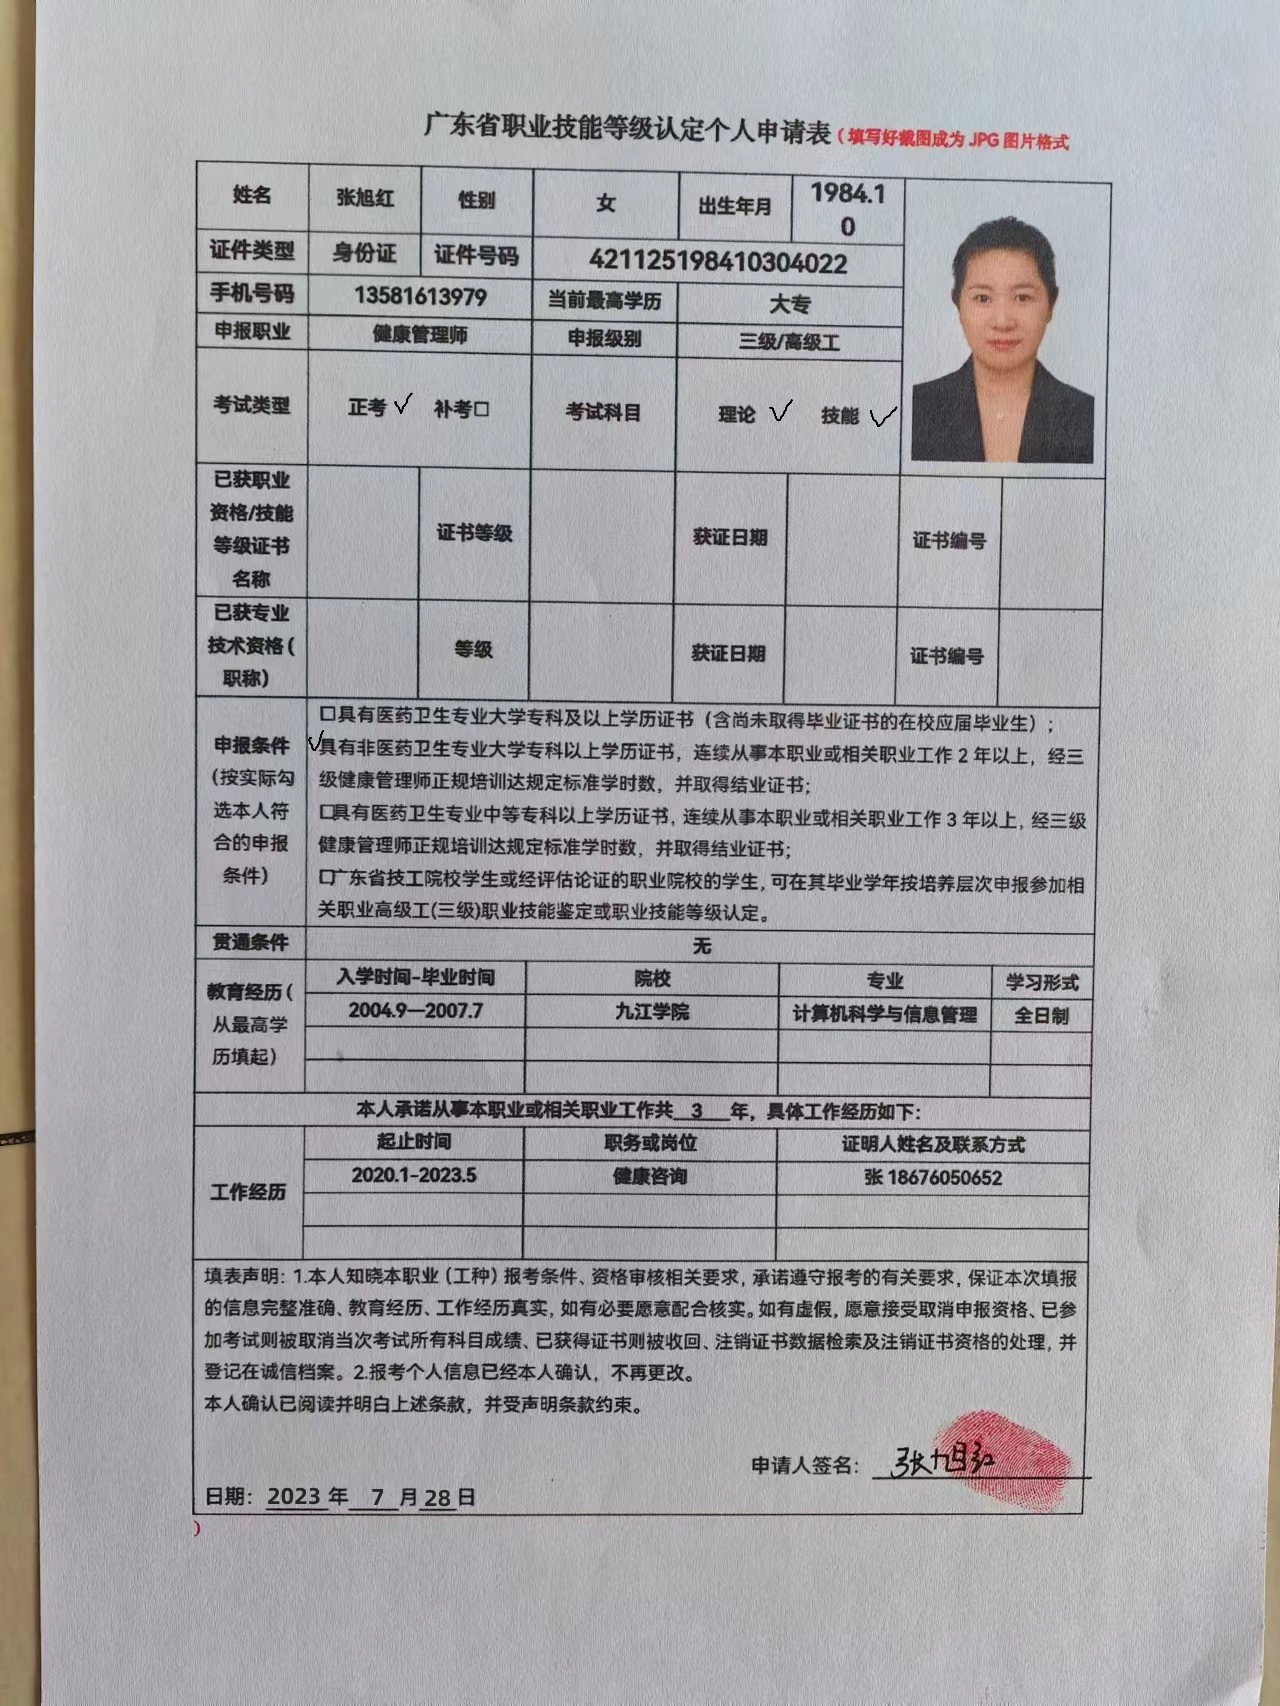 广东省职业技能等级认定个人申请表（填写好截图成为 JPG 图片格式
姓名 张旭红 性别 女 出生年月 1984.1
0
证件类型 身份证 证件号码 421125198410304022
手机号码 13581613979 当前最高学历 大专
申报职业 健康管理师 申报级别 三级/高级工
考试类型 正考✓ 补考□ 考试科目 理论 ✓ 技能 ✓
已获职业
资格/技能
等级证书
名称
证书等级 获证日期 证书编号
已获专业
技术资格（
职称）
等级 获证日期 证书编号
申报条件
（按实际勾
选本人符
合的申报
条件）
□具有医药卫生专业大学专科及以上学历证书（含尚未取得毕业证书的在校应届毕业生）；
✓具有非医药卫生专业大学专科以上学历证书，连续从事本职业或相关职业工作 2 年以上，经三
级健康管理师正规培训达规定标准学时数，并取得结业证书；
□具有医药卫生专业中等专科以上学历证书，连续从事本职业或相关职业工作 3 年以上，经三级
健康管理师正规培训达规定标准学时数，并取得结业证书；
□广东省技工院校学生或经评估论证的职业院校的学生，可在其毕业学年按培养层次申报参加相
关职业高级工(三级)职业技能鉴定或职业技能等级认定。
贯通条件 无
教育经历（
从最高学
历填起）
入学时间-毕业时间 院校 专业 学习形式
2004.9—2007.7 九江学院 计算机科学与信息管理 全日制
本人承诺从事本职业或相关职业工作共 3 年，具体工作经历如下：
工作经历
起止时间 职务或岗位 证明人姓名及联系方式
2020.1-2023.5 健康咨询 张 18676050652
填表声明：1.本人知晓本职业（工种）报考条件、资格审核相关要求，承诺遵守报考的有关要求，保证本次填报
的信息完整准确、教育经历、工作经历真实，如有必要愿意配合核实。如有虚假，愿意接受取消申报资格、已参
加考试则被取消当次考试所有科目成绩、已获得证书则被收回、注销证书数据检索及注销证书资格的处理，并
登记在诚信档案。2.报考个人信息已经本人确认，不再更改。
本人确认已阅读并明白上述条款，并受声明条款约束。
申请人签名： 张旭红
日期： 2023 年 7 月 28 日
）